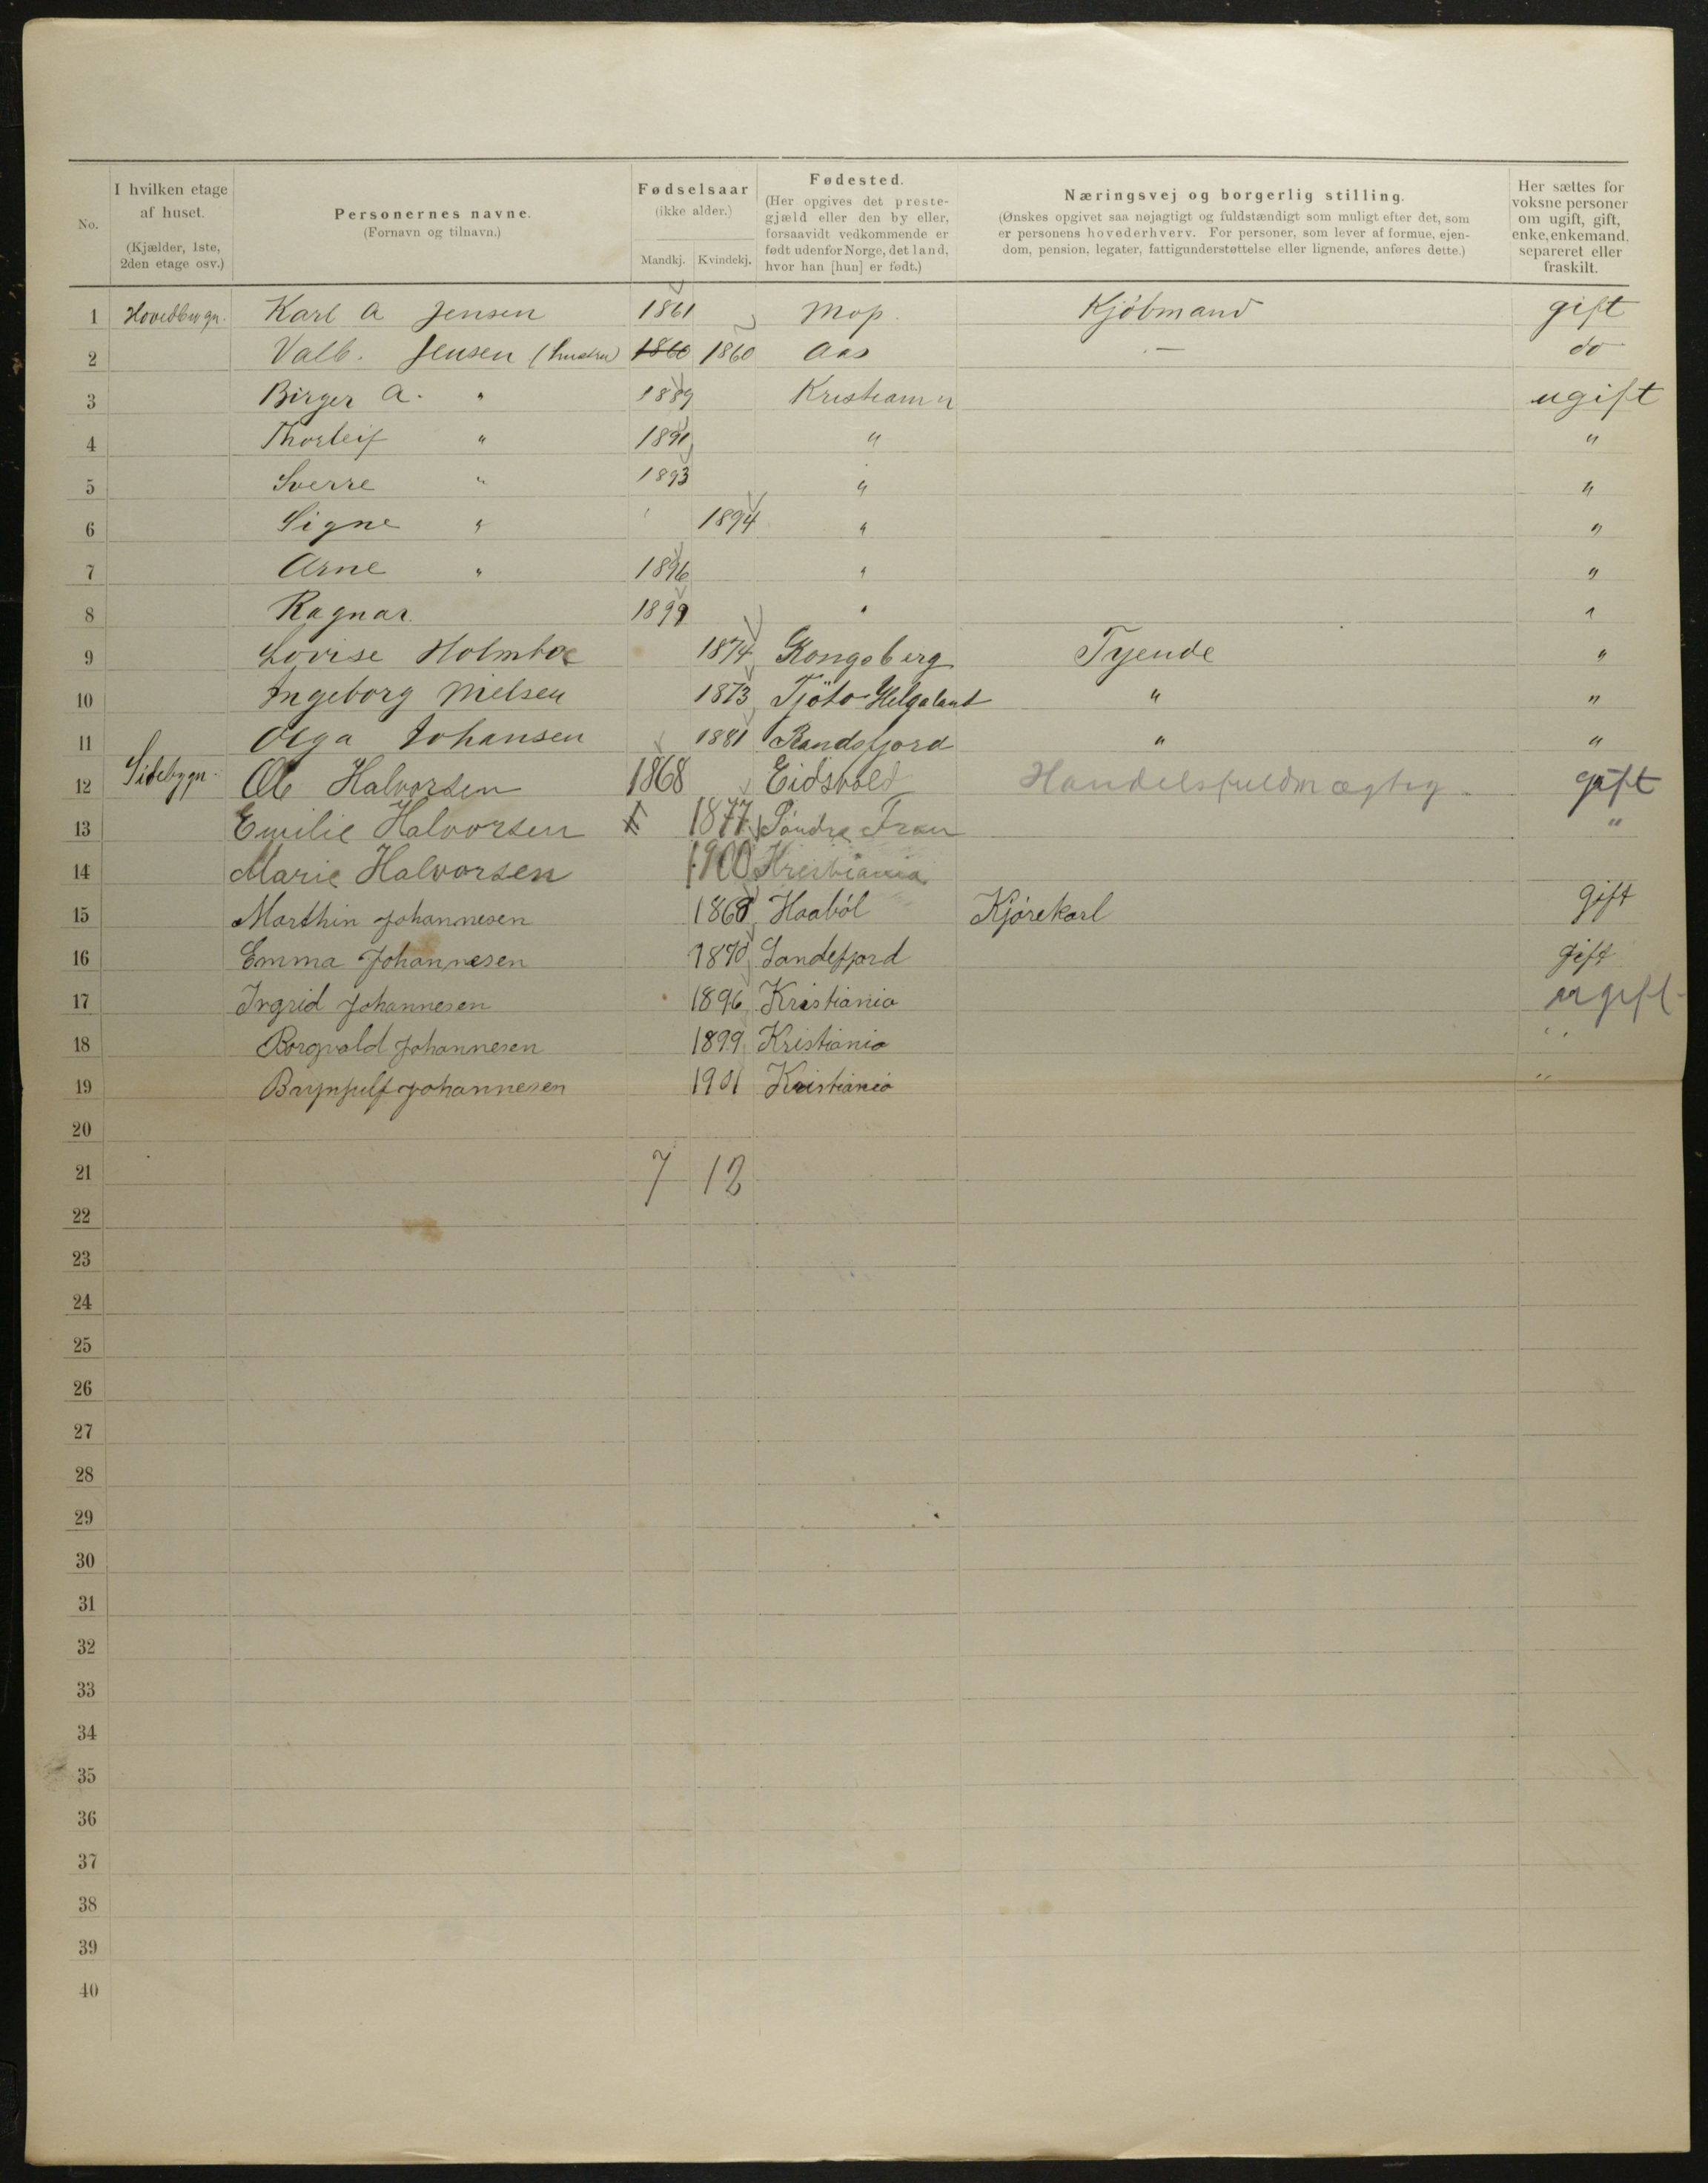 No. I hvilken etage af huset. (Kjælder, 1ste, 2den etage osv.) Personernes navne. (Fornavn og tilnavn.) Fødselsaar (ikke alder.) Mandkj. Kvindekj. Fødested. (Her opgives det prestegjæld eller den by eller, forsaavidt vedkommende er født udenfor Norge, det land, hvor han [hun] er født.) Næringsvej og borgerlig stilling. (Ønskes opgivet saa nøjagtigt og fuldstændigt som muligt efter det, som er personens hovederhverv. For personer, som lever af formue, ejendom, pension, legater, fattigunderstøttelse eller lignende, anføres dette.) Her sættes for voksne personer om ugift, gift, enke, enkemand, separeret eller fraskilt.
1 Hovedbygn. Karl A Jensen 1861 Kjöbmand gift
2 Valb. Jensen (hustru) 1860 1860 Aas — do
3 Birger A. " 1889 Kristiania ugift
4 Thorleif " 1891 " "
5 Sverre " 1893 " "
6 Signe " 1894 " "
7 Arne " 1896 " "
8 Ragnar. 1899 " "
9 Lovise Holmboe 1874 Kongsberg Tyende "
10 Ingeborg Nielsen 1873 Tjöto Helgeland " "
11 Olga Johansen 1881 Randsfjord " "
12 Sidebygn. Ole Halvorsen 1868 Eidsvold Handelsfuldmægtig gift
13 Emilie Halvorsen 1877 Söndre Fron "
14 Marie Halvorsen 1900 Kristiania
15 Marthin Johannesen 1868 Haaböl Kjørekarl gift
16 Emma Johannesen 1870 Sandefjord gift
17 Ingrid Johannesen 1896 Kristiania ugift
18 Borgvald Johannesen 1899 Kristiania "
19 Brynjulf Johannesen 1901 Kristiania "
20
21 7 12
22
23
24
25
26
27
28
29
30
31
32
33
34
35
36
37
38
39
40